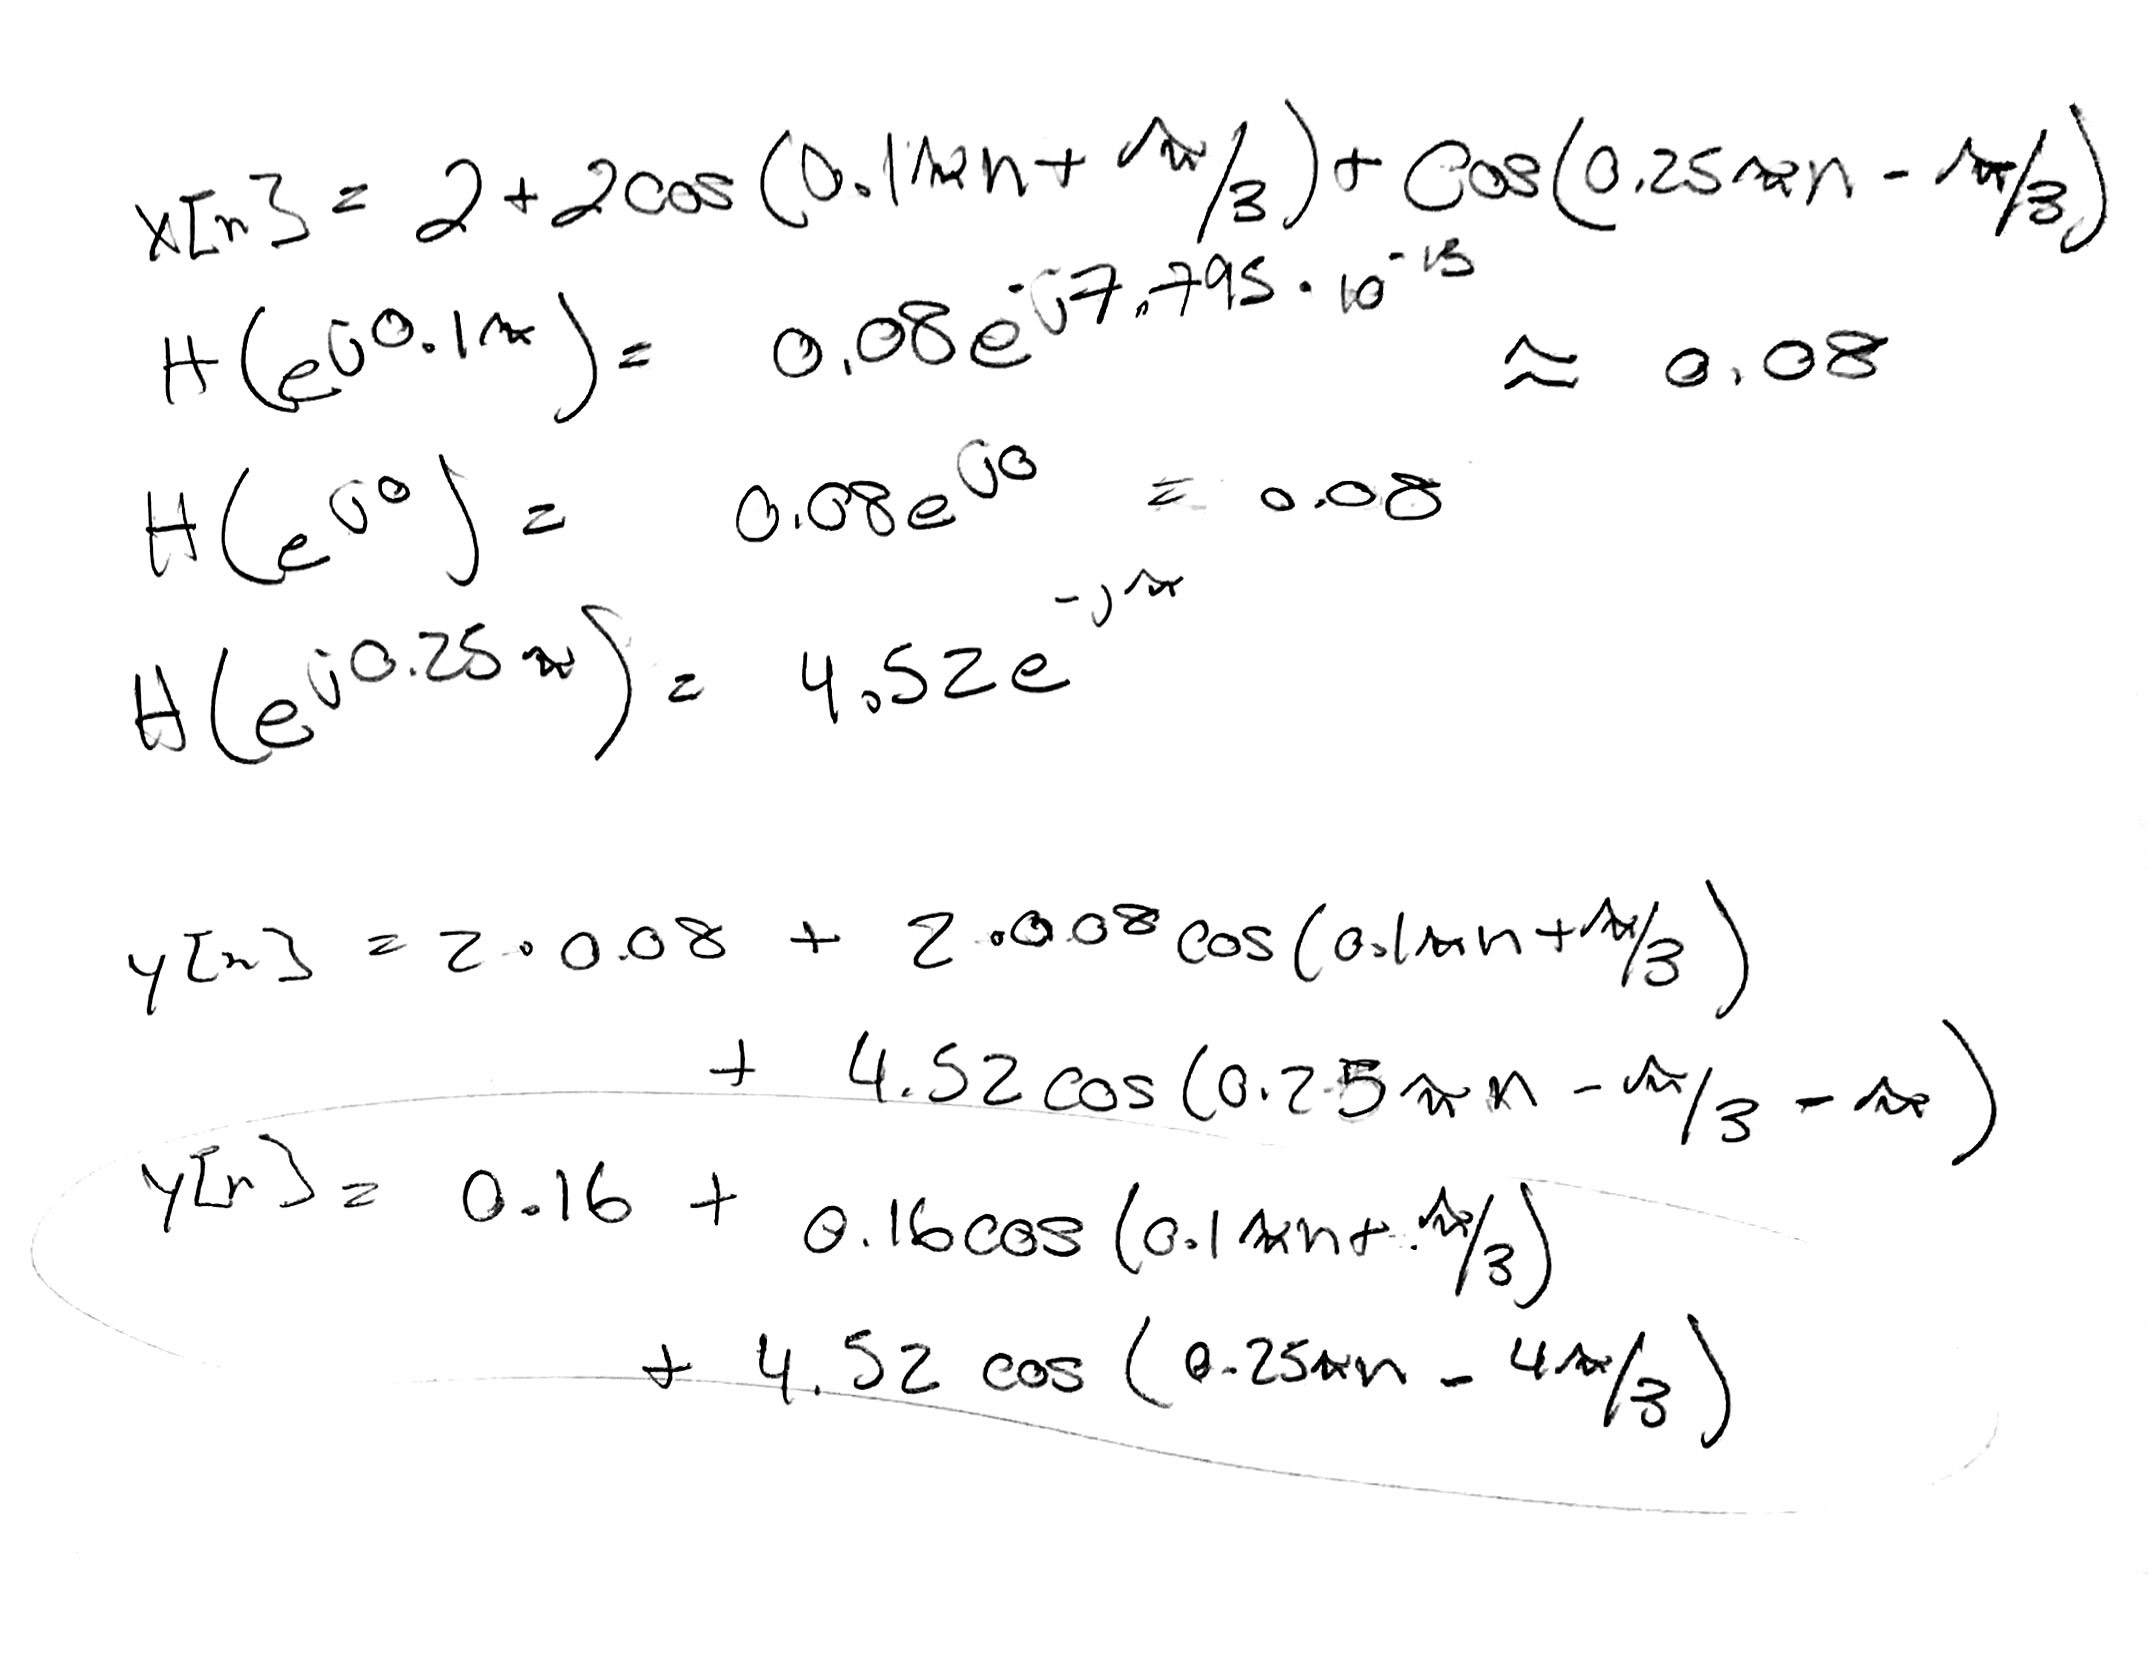 x[n] = 2 + 2cos(0.1πn + π/3) + cos(0.25πn - π/3)
H(e^j0.1π) = 0.08e^-j7.795·10^-15 ≈ 0.08
H(e^j0) = 0.08e^j0 = 0.08
H(e^j0.25π) = 4.52e^-jπ
y[n] = 2·0.08 + 2·0.08cos(0.1πn + π/3)
+ 4.52cos(0.25πn - π/3 - π)
y[n] = 0.16 + 0.16cos(0.1πn + π/3)
+ 4.52 cos(0.25πn - 4π/3)